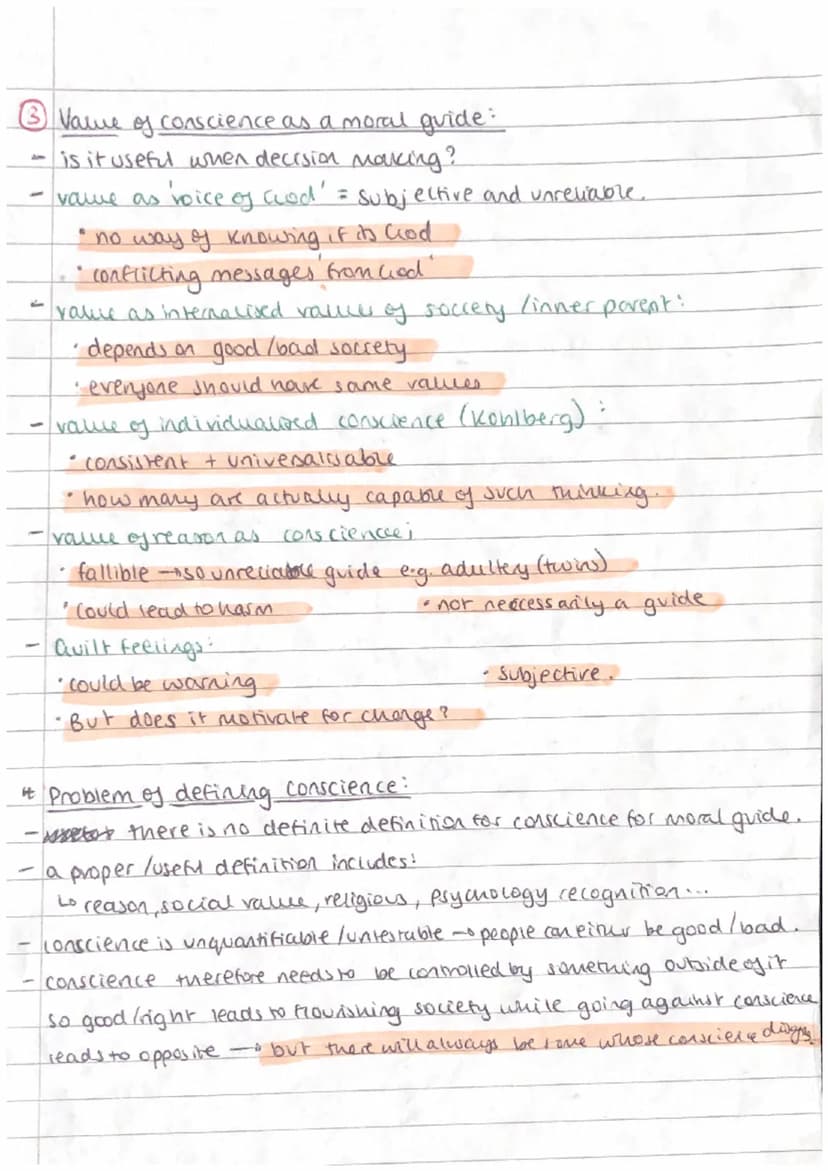 ③ Value of conscience as a moral guide:
- is it useful when decision making?
- value as 'voice of God' = subjective and unreliable.
• no way of knowing if its God
• conflicting messages 'from God'
- value as internalised values of society / inner parent:
• depends on good/bad society
• everyone should have same values
- value of individualised conscience (Kohlberg):
• consistent + universalisable
• how many are actually capable of such thinking.
- value of reason as conscience;
• fallible → so unreliable guide e.g. adultery (twins)
• could lead to harm • not neccessarily a guide
- Guilt feelings:
• could be warning • subjective.
• But does it motivate for change?
4 Problem of defining conscience:
- there is no definite definition for conscience for moral guide.
- a proper/useful definition includes:
↳ reason, social value, religious, psychology recognition...
- conscience is unquantifiable/untestable → people can either be good/bad.
- conscience therefore needs to be controlled by something outside of it
so good/right leads to flourishing society while going against conscience
leads to opposite → but there will always be some whose conscience